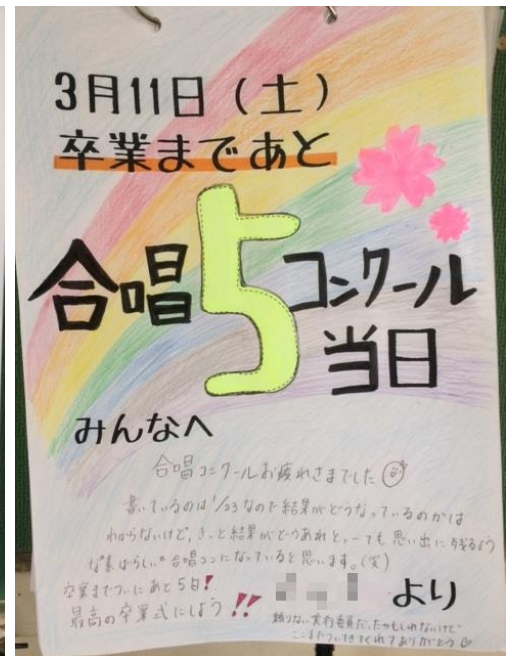 3月11日（土）
卒業まであと
5
合唱コンクール
当日
みんなへ
合唱コンクールお疲れさまでした
書いているのは1/23なので結果がどうなっているのかは
わからないけど、きっと結果がどうあれとっても思い出に残るよう
な"素ばらしい"合唱コンになっていると思います。(笑)
卒業までついにあと5日!
最高の卒業式にしよう!!
より
頼りない実行委員だったかもしれないけど
ここまでついてきてくれてありがとう